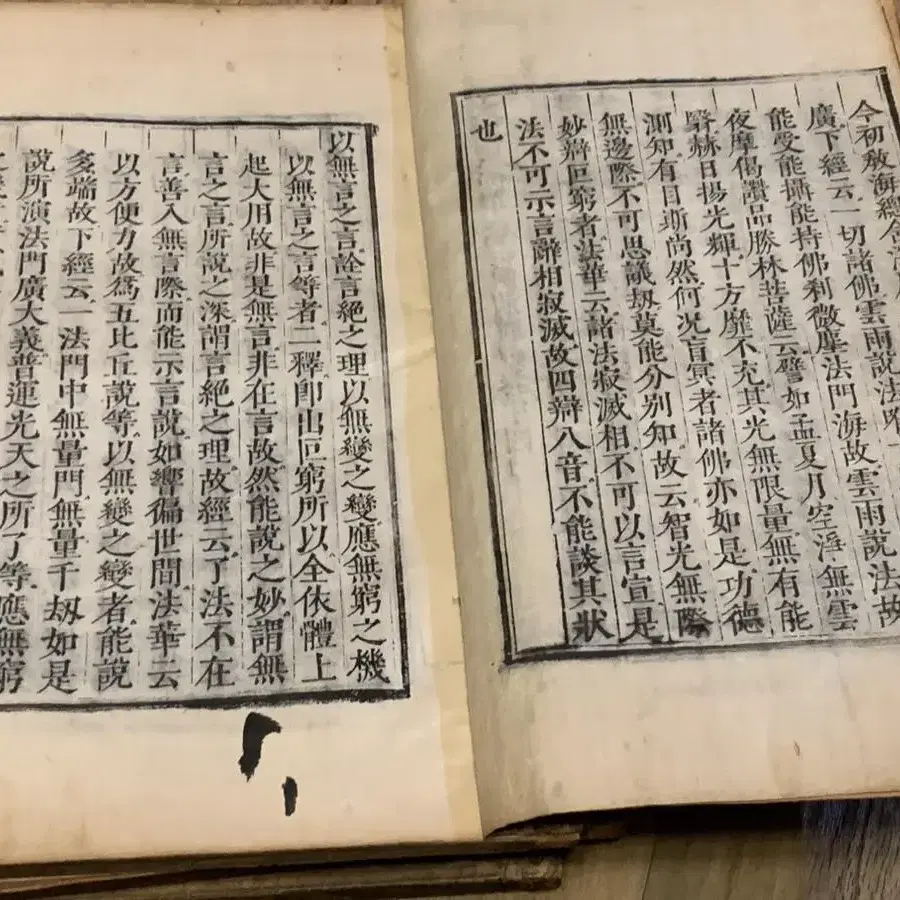 今初敎海
廣下經云一切諸佛雲雨說法
能受能攝能持佛刹微塵法門海故雲雨說法故
夜摩偈讚品勝林菩薩云譬如孟夏月空淨無雲
曀赫日揚光輝十方靡不充其光無限量無有能
測知有目斯尚然何況盲冥者諸佛亦如是功德
無邊際不可思議劫莫能分別知故云智光無際
妙辯叵窮者法華云諸法寂滅相不可以言宣是
法不可示言辭相寂滅故四辯八音不能談其狀
也
以無言之言詮言絶之理以無變之變應無窮之機
以無言之言等者二釋卽出叵窮所以全依體上
起大用故非是無言非在言故然能說之妙謂無
言之言所說之深謂言絶之理故經云了法不在
言善入無言際而能示言說如響徧世間法華云
以方便力故爲五比丘說等以無變之變者能說
多端故下經云一法門中無量門無量千劫如是
說所演法門廣大義普運光天之所了等應無窮